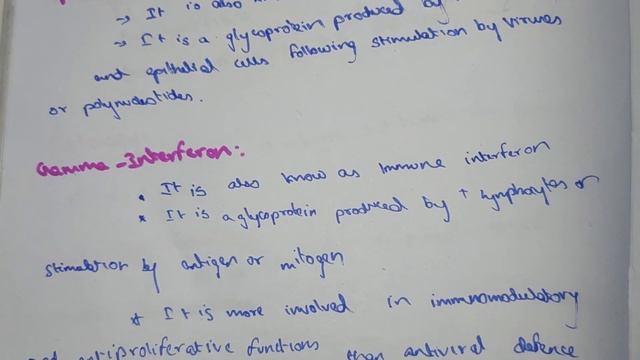 → It is also
→ It is a glycoprotein produced by
and epithelial cells following stimulation by viruses
or polynucleotides.
Gamma-Interferon:
• It is also know as Immune interferon
• It is a glycoprotein produced by T lymphocytes on
stimulation by antigen or mitogen
* It is more involved in immunomodulatory
and antiproliferative functions than antiviral defence